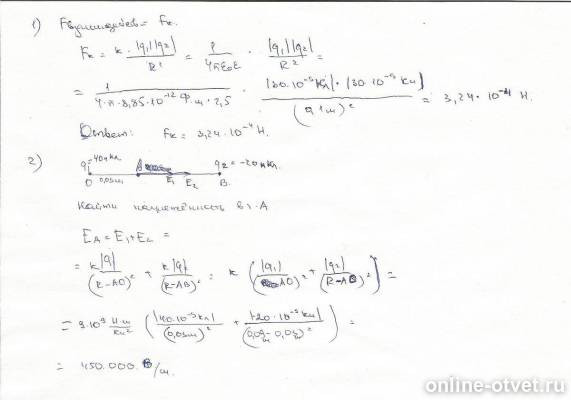 1) Fвзаимодейств = Fк.
Fк = k · |q1||q2| / R² = 1 / 4πε0ε · |q1||q2| / R² =
= 1 / 4·π·8,85·10⁻¹² Ф·м·2,5 · |30·10⁻⁹ Кл|·|30·10⁻⁹ Кл| / (0,1м)² = 3,24·10⁻⁴ Н.
Ответ: Fк = 3,24·10⁻⁴ Н.
2) q1 = 40нКл A q2 = -20нКл.
O 0,03м E1 E2 B.
Найти напряжённость в т. A
EA = E1 + E2 =
= k|q| / (R-AO)² + k|q| / (R-AB)² = k ( |q1| / (AO)² + |q2| / (R-AO)² ) =
= 9·10⁹ Н·м / Кл² ( |40·10⁻⁹Кл| / (0,03м)² + |-20·10⁻⁹Кл| / ( - 0,03м)² ) =
= 450.000 В/м.
online-otvet.ru